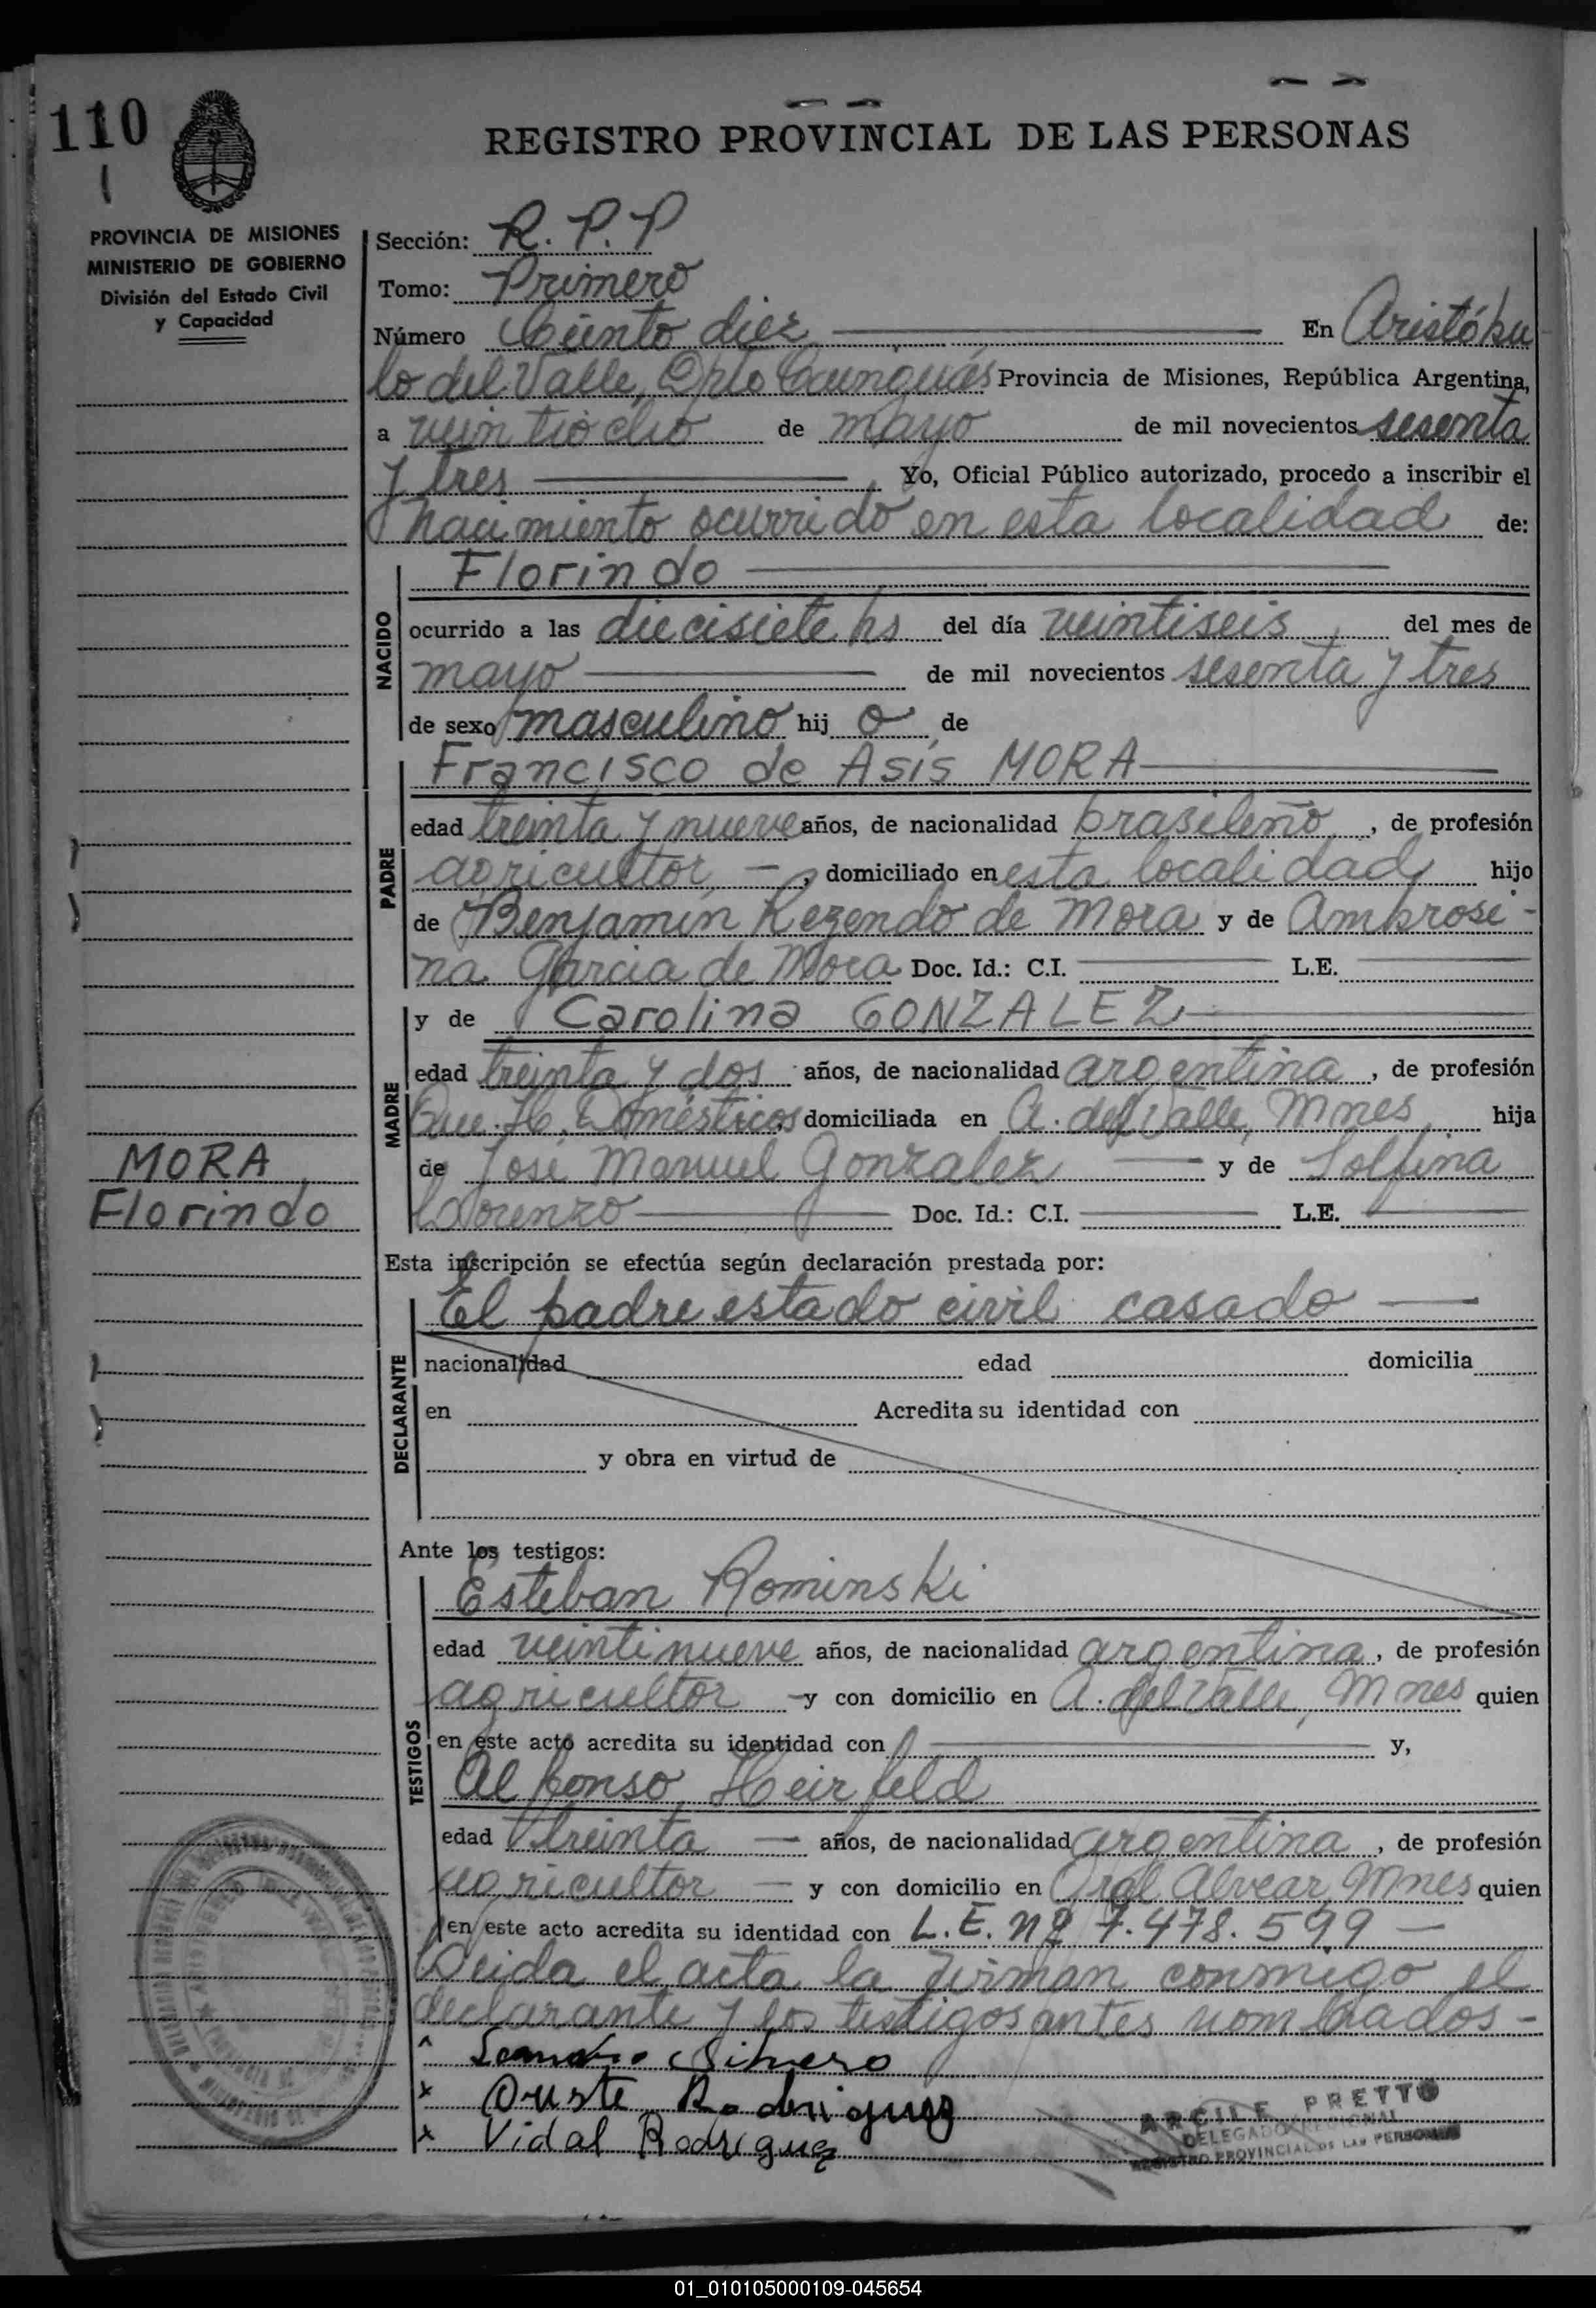 110
REGISTRO PROVINCIAL DE LAS PERSONAS
PROVINCIA DE MISIONES
MINISTERIO DE GOBIERNO
División del Estado Civil
y Capacidad
Sección: R. P. P
Tomo: Primero
Número Ciento diez En Aristóbu
lo del Valle, Dpto Cainguás Provincia de Misiones, República Argentina,
a veintiocho de mayo de mil novecientos sesenta
y tres Yo, Oficial Público autorizado, procedo a inscribir el
Nacimiento ocurrido en esta localidad de:
NACIDO
Florindo
ocurrido a las diecisiete hs del día veintiseis del mes de
mayo de mil novecientos sesenta y tres
de sexo masculino hij o de
PADRE
Francisco de Asís MORA
edad treinta y nueve años, de nacionalidad brasileño, de profesión
agricultor -, domiciliado en esta localidad hijo
de Benjamín Rezendo de Mora y de Ambrosi-
na Garcia de Mora Doc. Id.: C.I. L.E.
MADRE
y de Carolina GONZALEZ
edad treinta y dos años, de nacionalidad argentina, de profesión
Que. H. Domésticos domiciliada en A. del Valle, Mnes hija
de José Manuel Gonzalez y de Solfina
Lorenzo Doc. Id.: C.I. L.E.
MORA
Florindo
Esta inscripción se efectúa según declaración prestada por:
DECLARANTE
El padre estado civil casado
nacionalidad edad domicilia
en Acredita su identidad con
y obra en virtud de
Ante los testigos:
TESTIGOS
Esteban Rominski
edad veintinueve años, de nacionalidad argentina, de profesión
agricultor - y con domicilio en A. del Valle, Mnes quien
en este acto acredita su identidad con y,
Alfonso Heirfeld
edad treinta - años, de nacionalidad argentina, de profesión
agricultor - y con domicilio en Alvear, Mnes quien
en este acto acredita su identidad con L.E. Nº 7.478.599 -
Leida el acta la firman conmigo el
declarante y los testigos antes nombrados -
x
x Rodriguez
x Vidal Rodriguez
ARCILE PRETTO
DELEGADO REGIONAL
REGISTRO PROVINCIAL DE LAS PERSONAS
01_010105000109-045654